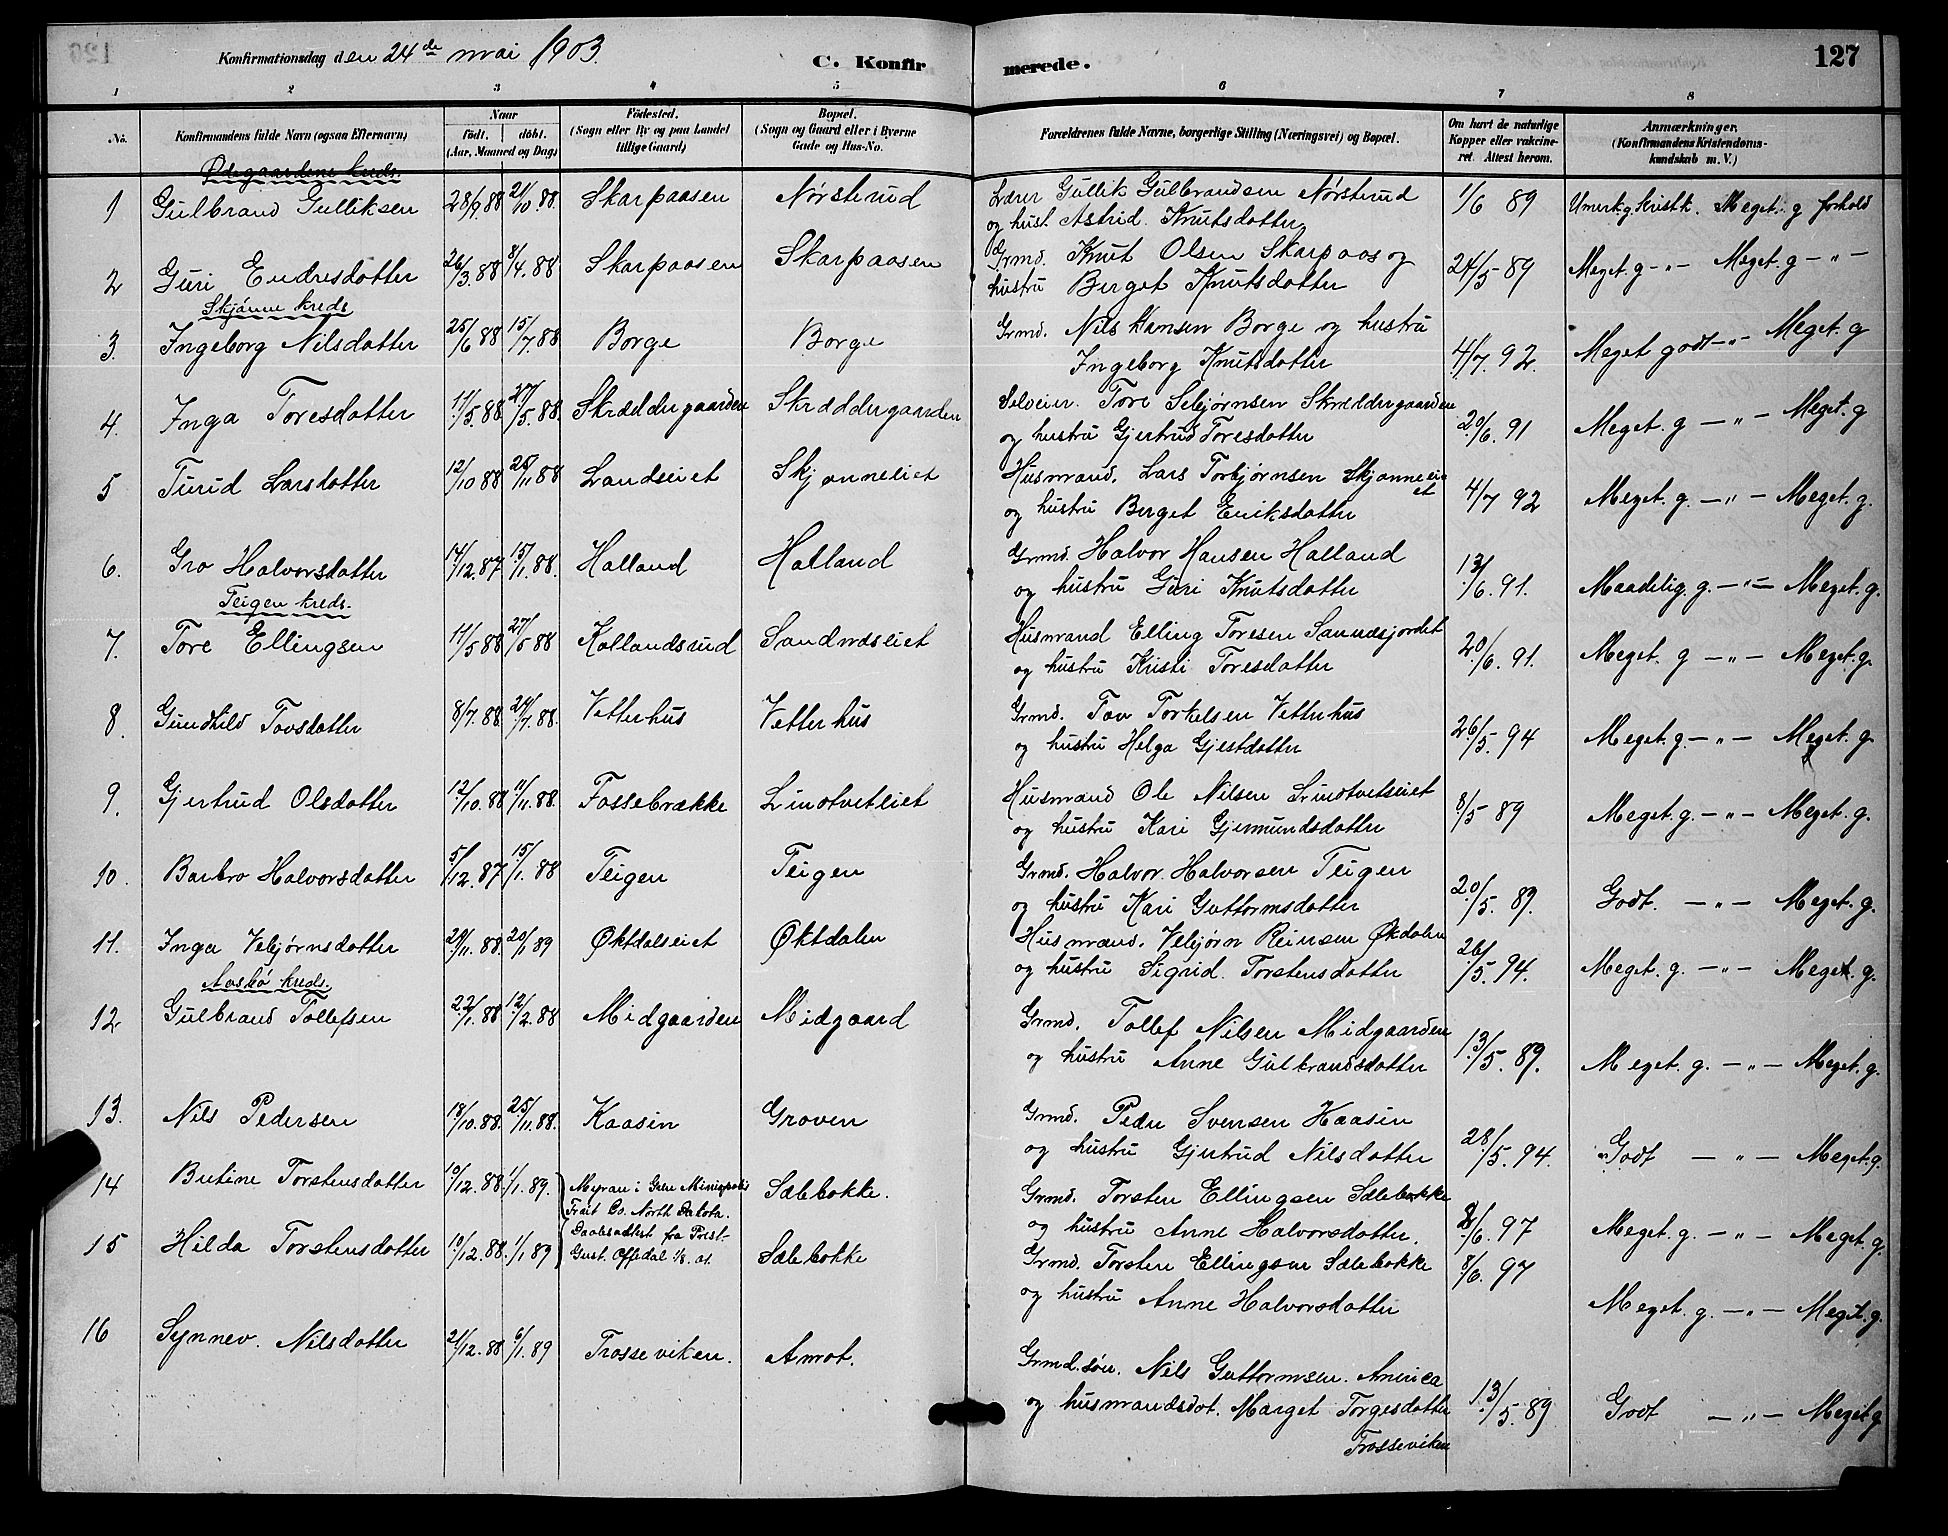 Konfirmationsdag den 24de mai 1903. C. Konfirmerede. 127
1 2 3 4 5 6 7 8
No. Konfirmandens fulde Navn (ogsaa Efternavn) Naar födt. döbt. (Aar, Maaned og Dag) Födested. (Sogn eller By og paa Landet tillige Gaard) Bopæl. (Sogn og Gaard eller i Byerne Gade og Hus-No. Forældrenes fulde Navne, borgerlige Stilling (Næringsvei) og Bopæl. Om havt de naturlige Kopper eller vakcineret. Attest herom. Anmærkninger. (Konfirmandens Kristendomskundskab m. V.)
Ødegaardene kreds.
1 Gulbrand Gulliksen 28/9 88 21/10. 88. Skarpaasen Nørsterud Lærer Gullik Gulbrandsen Nørsterud 1/6 89 Umerk. g. kristk. Meget. g forhold
og hust. Astrid. Knutsdotter
2 Guri Endresdotter 26/3. 88 8/4. 88 Skarpaasen Skarpaasen Grmd. Knut Olsen Skarpaas og 24/5 89 Meget. g -"- Meget. g -"-
hustru Berget Knutsdotter
Skjönne kreds
3. Ingeborg Nilsdotter 25/6 88 15/7. 88 Borge Borge Grmd. Nils Hansen Borge og hustru 4/7. 92. Meget godt -"- Meget. g
Ingeborg Knutsdotter
4. Inga Toresdotter 11/5. 88 27/5. 88 Skræddergaarden Skræddergaarden Selveier. Tore Sebjørnsen Skræddergaarden 20/6. 91 Meget. g -"- Meget. g
og hustru Gjertrud Toresdotter
5 Turid Larsdotter 12/10 88 25/11 88 Landseiet Skjønneeiet Husmand. Lars Torbjørnsen Skjønneeiet 4/7 92 Meget. g. -"- Meget. g.
og hustru Berget Eriksdotter
6. Gro Halvorsdotter 14/12. 87 15/1. 88. Halland Halland Grmd. Halvor Hansen Halland 13/6. 91. Maadelig. g. -"- Meget. g.
og hustru Guri Knutsdotter
Teigen kreds.
7. Tore Ellingsen 11/5 88 27/5 88 Kollandsrud Sandnæseiet Husmand Elling Toresen Sanndsjordet 20/6. 91. Meget. g -"- Meget. g.
og hustru Kristi Toresdotter
8. Gundhild Tovsdotter 8/7. 88. 24/7. 88. Vetterhus Vetterhus Grmd. Tov Torkelsen Vetterhus 26/5. 94 Meget. g. -"- Meget. g.
og hustru Helga Gjestdotter
9. Gjertrud Olsdotter 12/10. 88 11/11. 88. Fossebrække Linotveteiet Husmand Ole Nilsen 8/5 89 Meget. g. -"- Meget. g.
og hustru Kari Gjermundsdotter
10. Barbro Halvorsdotter 5/12. 87 15/1. 88 Teigen Teigen Grmd. Halvor. Halvorsen Teigen 20/5. 89. Godt. -"- Meget. g.
og hustru Kari Guttormsdotter
11. Inga Vebjørnsdotter 29/11. 88. 20/1 89 Øktdalseiet Øktdalen Husmand. Vebjørn Reinsen Økdalen 26/5. 94. Meget. g. -"- Meget. g.
og hustru Sigrid. Torstensdotter
Aasbø kreds.
12 Gulbrand Tollefsen 22/1. 88 12/2. 88 Midgaarden Midgaard Grmd. Tollef Nilsen Midgaarden 13/5. 89. Meget. g. -"- Meget. g.
og hustru Anne Gulbrandsdotter
13. Nils Pedersen 18/10. 88. 25/11. 88. Kaasin Groven Grmd. Peder Svensen Haasin 28/5. 94. Godt -"- Meget. g.
og hustru Gjertrud Nilsdotter
14 Butine Torstensdotter 10/12. 88. 1/1. 89. Myran i Gran Menighed Traill Co. North Dakota. Sælebokke. Grmd. Torsten Ellingsen Sælebokke 8/6. 97 Meget. g. -"- Meget. g.
og hustru Anne Halvorsdotter.
15 Hilda Torstensdotter 10/12. 88. 1/1 89 Daabsattest fra Prest Gust. Offedal 1/8. 01. Sælebokke Grmd. Torsten Ellingsen Sælebokke 8/6. 97 Meget. g. -"- Meget. g.
og hustru Anne Halvorsdotter
16 Synnev. Nilsdotter 21/12. 88 6/1. 89 Trosseviken. Amot. Grmd. søn. Nils Guttormsen. America 13/5. 89 Godt -"- Meget. g.
og husmandsdot. Marget Torgesdotter
Trosseviken